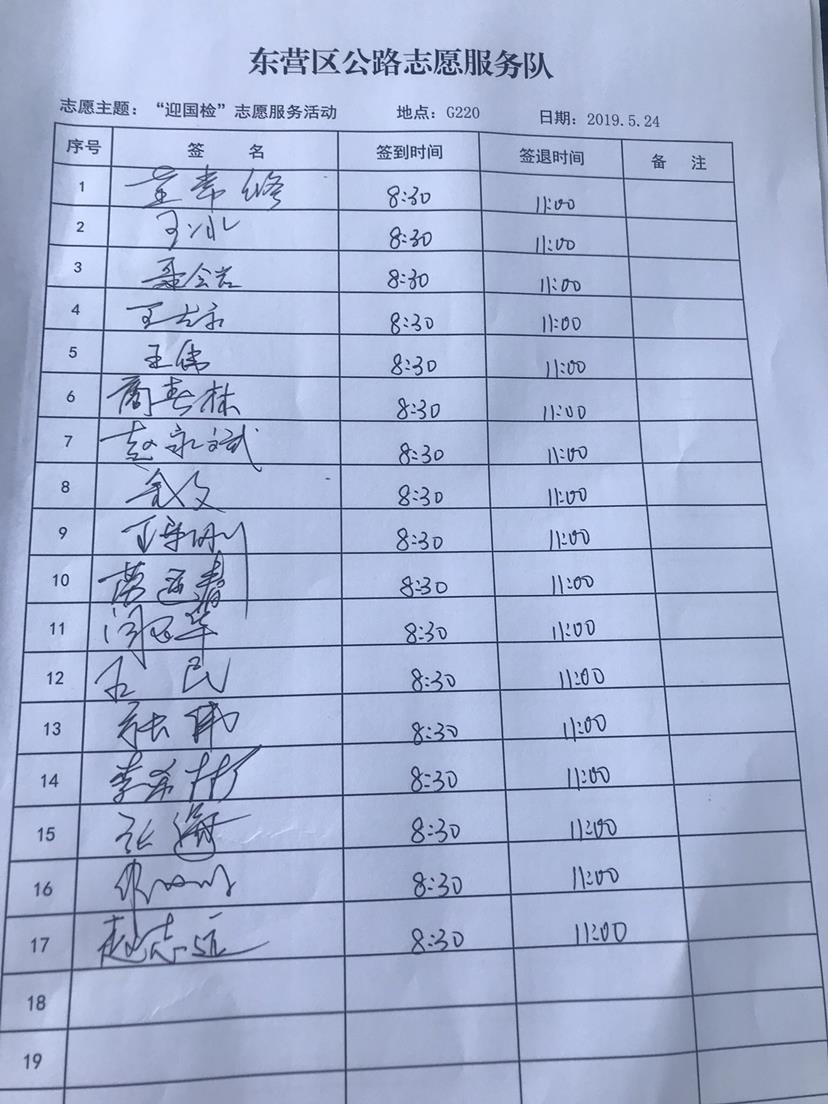 东营区公路志愿服务队
志愿主题：“迎国检”志愿服务活动 地点：G220 日期：2019.5.24
序号 签 名 签到时间 签退时间 备 注
1 8:30 11:00
2 王冰 8:30 11:00
3 8:30 11:00
4 8:30 11:00
5 王伟 8:30 11:00
6 商春林 8:30 11:00
7 赵永斌 8:30 11:00
8 8:30 11:00
9 8:30 11:00
10 8:30 11:00
11 8:30 11:00
12 8:30 11:00
13 8:30 11:00
14 8:30 11:00
15 张海 8:30 11:00
16 8:30 11:00
17 赵志远 8:30 11:00
18
19